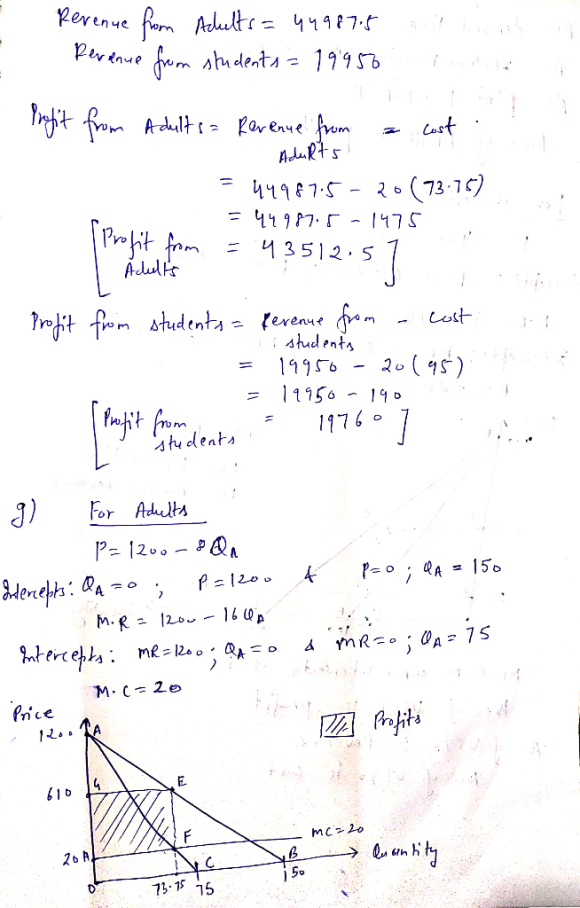 Revenue from Adults = 44987.5
Revenue from students = 19950
Profit from Adults = Revenue from Adults = cost
= 44987.5 - 20(73.75)
= 44987.5 - 1475
[Profit from Adults = 43512.5]
Profit from students = Revenue from students - cost
= 19950 - 20(95)
= 19950 - 190
[Profit from students = 19760]
g) For Adults
P = 1200 - 8QA
Intercepts: QA = 0 ; P = 1200 & P = 0 ; QA = 150
M.R = 1200 - 16QA
Intercepts: MR = 1200 ; QA = 0 & MR = 0 ; QA = 75
M.C = 20
Price
1200 A
Profits
610 G E
F MC = 20
20 H C B Quantity
0 73.75 75 150